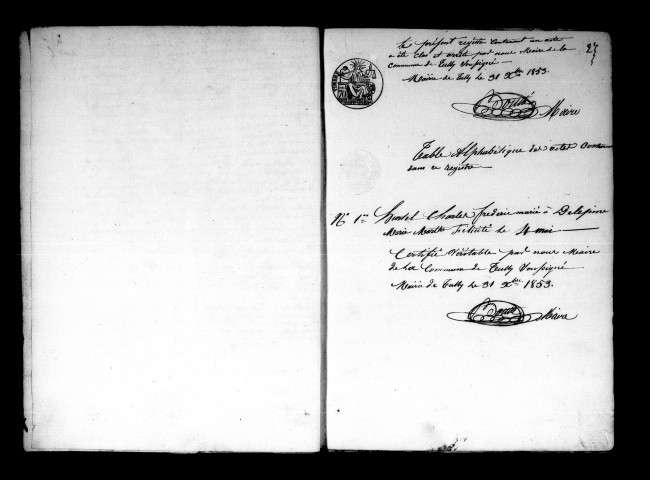 Le présent registre contenant un acte
a été clos et arrêté par nous Maire de la
Commune de Tully Soussigné
Mairie de Tully le 31 Xbre 1853.
Maire
Table Alphabétique des actes Contenus
dans ce registre
No 1er Hurtel Charles frédéric marié à Delepine
Marie Marthe Félicité le 4 mai
Certifié Véritable par nous Maire
de la Commune de Tully Soussigné
Mairie de Tully le 31 Xbre 1853.
Maire